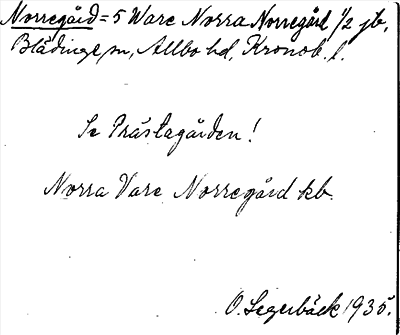 Norregård = 5 Ware Norra Norregård 1/2 jb,
Blädinge sn, Allbo hd, Kronob. l.
Se Prästagården!
Norra Vare Norregård kb.
O. Segerbäck 1935.